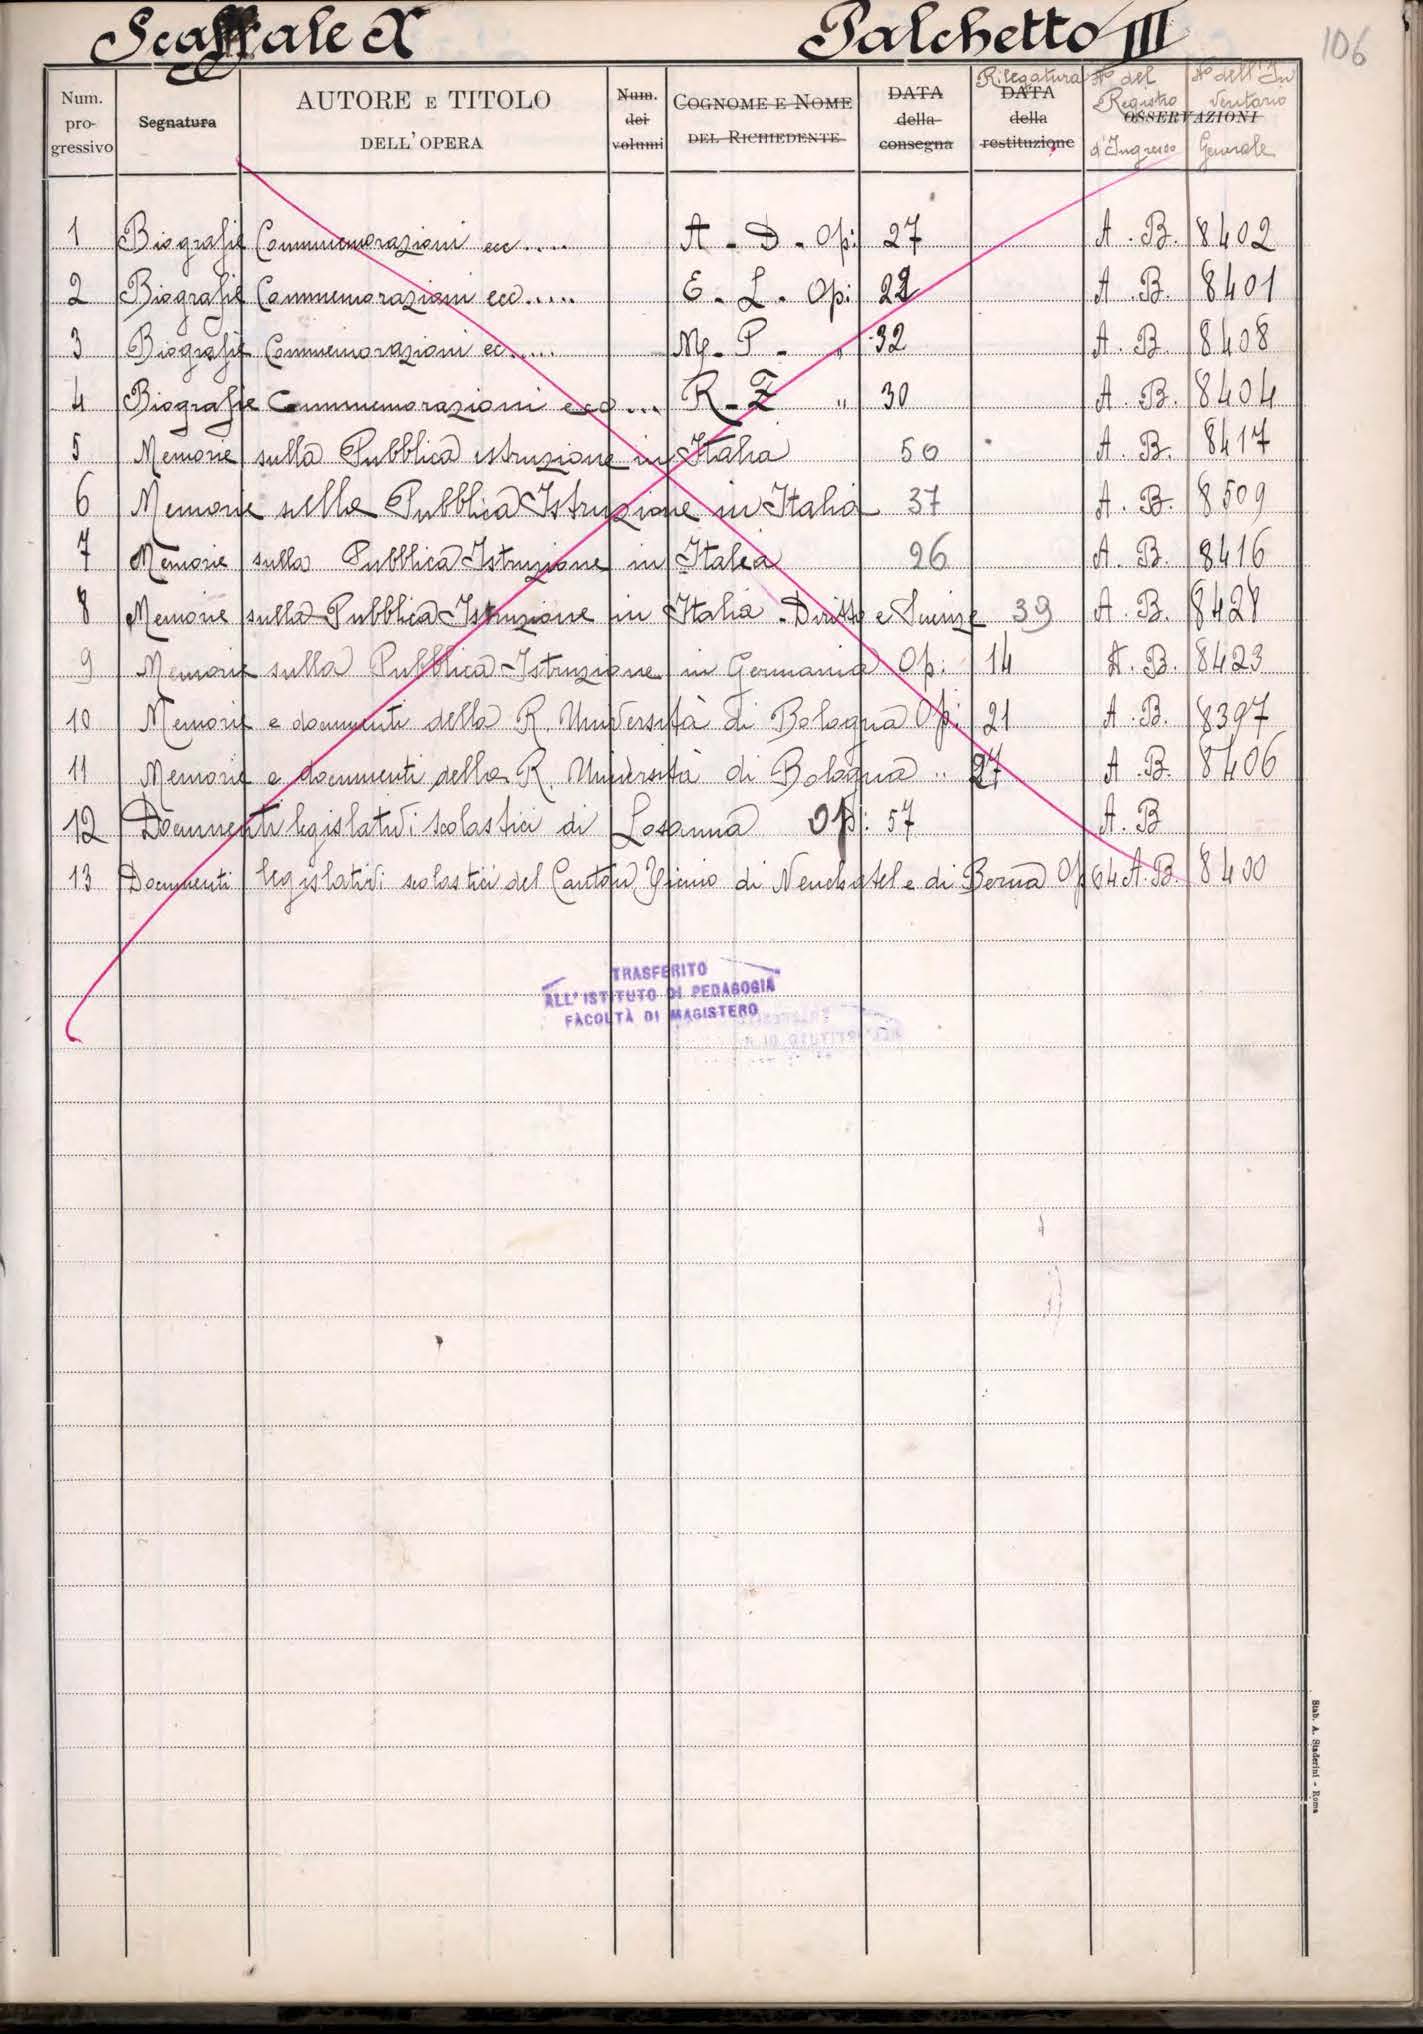 Scaffale X Palchetto III 106
Num. progressivo Segnatura AUTORE E TITOLO DELL'OPERA Num. dei volumi COGNOME E NOME DEL RICHIEDENTE DATA della consegna Rilegatura DATA della restituzione No del Registro d'Ingresso OSSERVAZIONI No dell'Inventario Generale
1 Biografie Commemorazioni ecc..... A - D - Op: 27 A. B. 8402
2 Biografie Commemorazioni ecc..... E - L - Op: 22 A. B. 8401
3 Biografie Commemorazioni ec..... M - P - " 32 A. B. 8408
4 Biografie Commemorazioni ecc... R - Z " 30 A. B. 8404
5 Memorie sulla Pubblica istruzione in Italia 50 A. B. 8417
6 Memorie sulla Pubblica Istruzione in Italia 37 A. B. 8509
7 Memorie sulla Pubblica Istruzione in Italia 26 A. B. 8416
8 Memorie sulla Pubblica Istruzione in Italia - Diritto e Scienze 39 A. B. 8428
9 Memorie sulla Pubblica Istruzione in Germania Op: 14 A. B. 8423
10 Memorie e documenti della R. Università di Bologna Op: 21 A. B. 8397
11 Memorie e documenti della R. Università di Bologna " 27 A. B. 8406
12 Documenti legislativi scolastici di Losanna Op: 57 A. B
13 Documenti legislativi scolastici del Canton Ticino di Neuchatel e di Berna Op 64 A. B. 8400
TRASFERITO
ALL'ISTITUTO DI PEDAGOGIA
FACOLTÀ DI MAGISTERO
Stab. A. Staderini - Roma